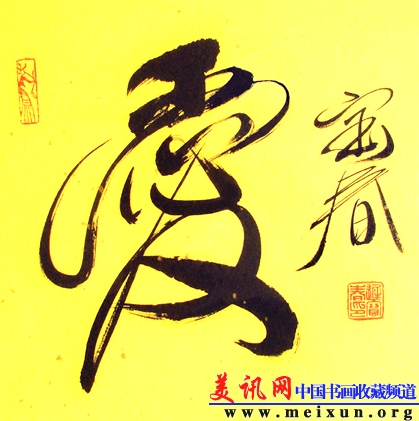 愛
宝春
美讯网 中国书画收藏频道
www.meixun.org